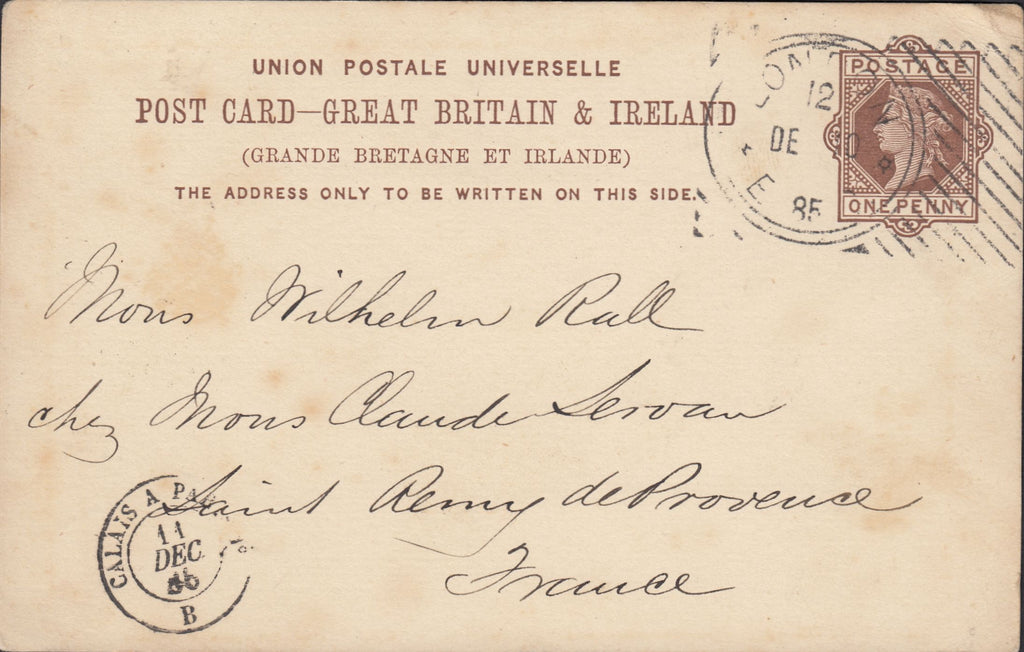 UNION POSTALE UNIVERSELLE
POST CARD—GREAT BRITAIN & IRELAND
(GRANDE BRETAGNE ET IRLANDE)
THE ADDRESS ONLY TO BE WRITTEN ON THIS SIDE.
POSTAGE
ONE PENNY
12
DE
85
E
Mons Wilhelm Rall
chez Mons Claude Servan
Saint Remy de Provence
France
CALAIS A
11
DEC
B